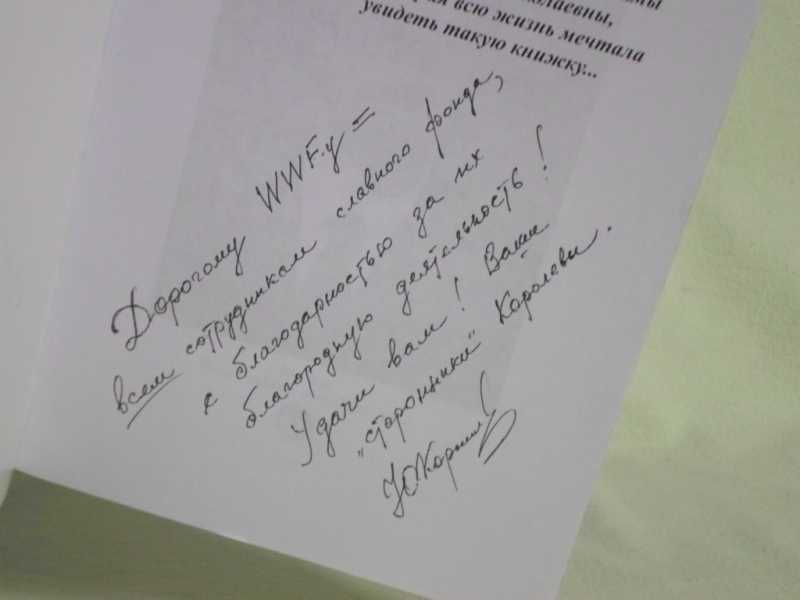 всю жизнь мечтала
увидеть такую книжку...
Дорогому WWF-у =
всем сотрудникам славного фонда,
с благодарностью за их
благородную деятельность!
Удачи вам! Ваши
"сторонники" Королевы.